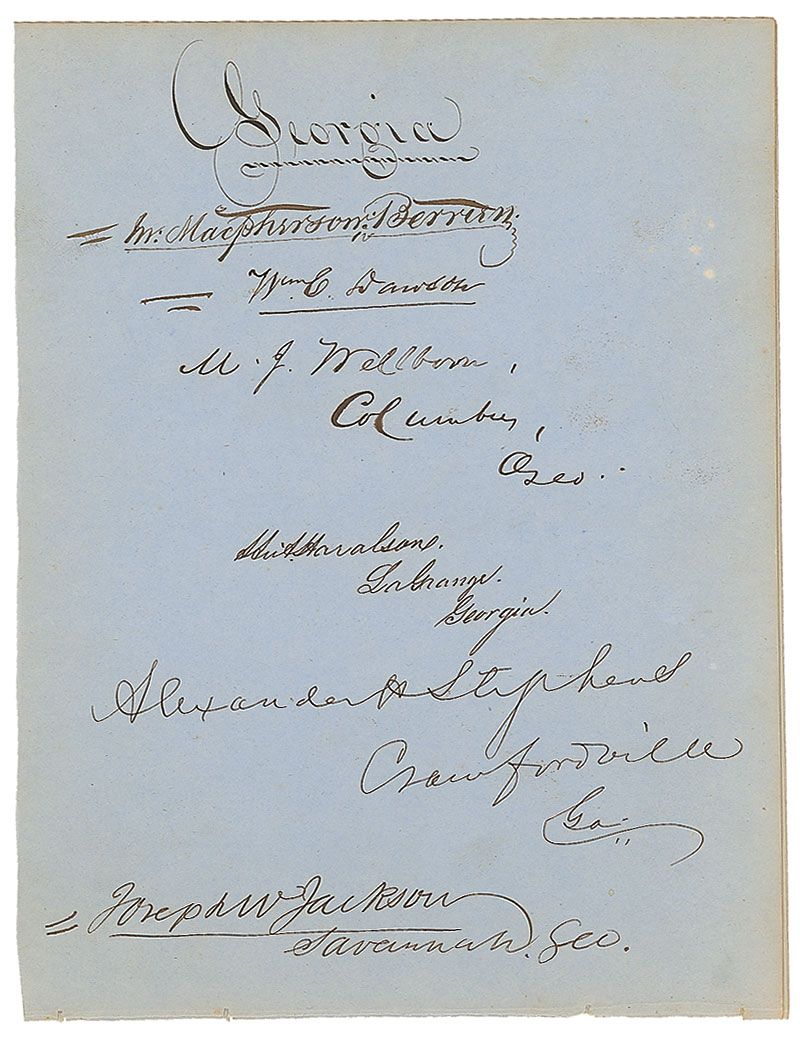 Georgia
= Mr. Macpherson Berrien.
= Wm. C. Dawson
M. J. Wellborn,
Columbus,
Geo..
Haralson.
LaGrange.
Georgia.
Alexander H Stephens
Crawfordville
Ga.
= Joseph W Jackson
Savannah. Geo.